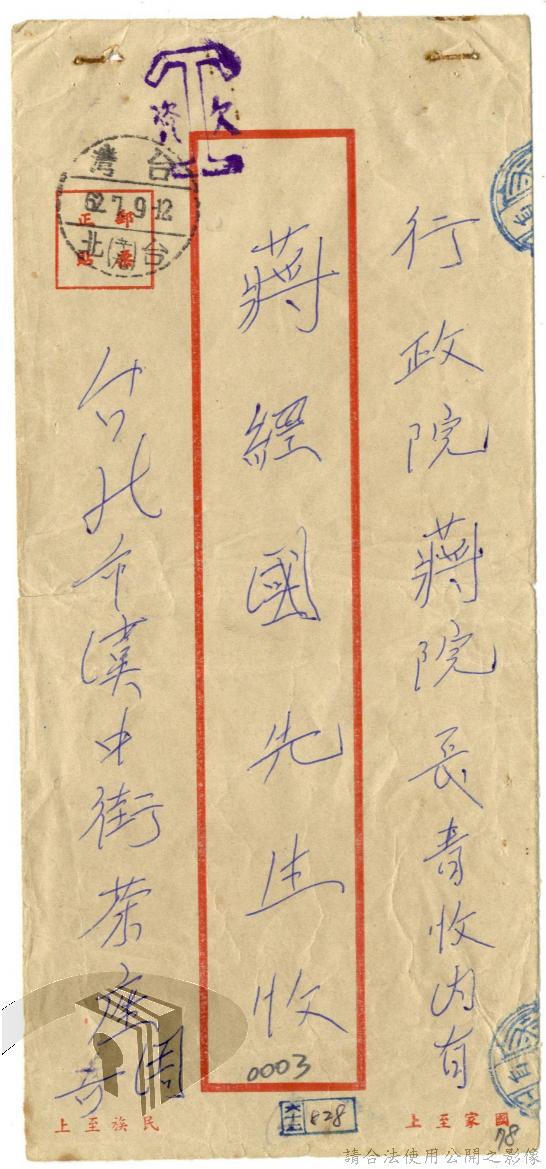 行政院蔣院長青收內有
蔣經國先生收
台北市漢中街茶座周
欠資
T
台灣
62.7.9.12
台北
郵票
正貼
0003
六十二 828
國家至上
民族至上
78
請合法使用公開之影像